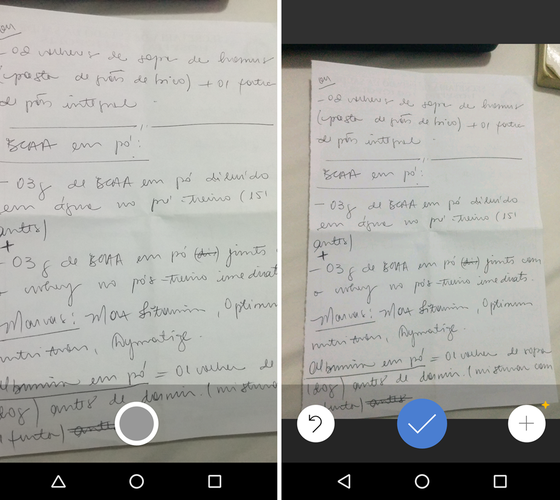 ou
- 02 colheres de sopa de hommus
(pasta de grão de bico) + 01 fatia
de pão integral
BCAA em pó:
- 03g de BCAA em pó diluído
em água no pré-treino (15'
antes)
+
- 03g de BCAA em pó
o whey no pós-treino imediat
Marcas: Max Titanium, Optimum
nutrition, Dymatize.
Albumina em pó = 01 colher de
antes de dormir. (misturar
fruta)
ou
- 02 colheres de sopa de hommus
(pasta de grão de bico) + 01 fatia
de pão integral
BCAA em pó:
- 03g de BCAA em pó diluído
em água no pré-treino (15'
antes)
+
- 03g de BCAA em pó junto com
o whey no pós-treino imediat.
Marcas: Max Titanium, Optimum
nutrition, Dymatize.
Albumina em pó = 01 colher de sopa
antes de dormir. (misturar com
fruta)